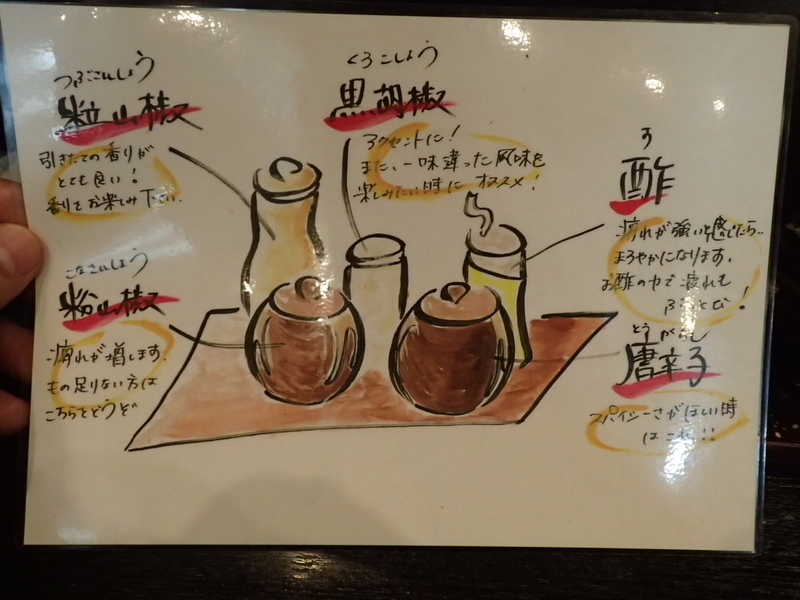 つぶさんしょう
粒山椒
引きたての香りが
とても良い!
香りをお楽しみ下さい.
くろこしょう
黒胡椒
アクセントに!
また、一味違った風味を
楽しみたい時にオススメ!
す
酢
痺れが強いと感じたら..
まろやかになります.
お酢の力で疲れも
ふきとび!
こなさんしょう
粉山椒
痺れが増します.
もの足りない方は
こちらをどうぞ
とうがらし
唐辛子
スパイシーさがほしい時
はこれ!!